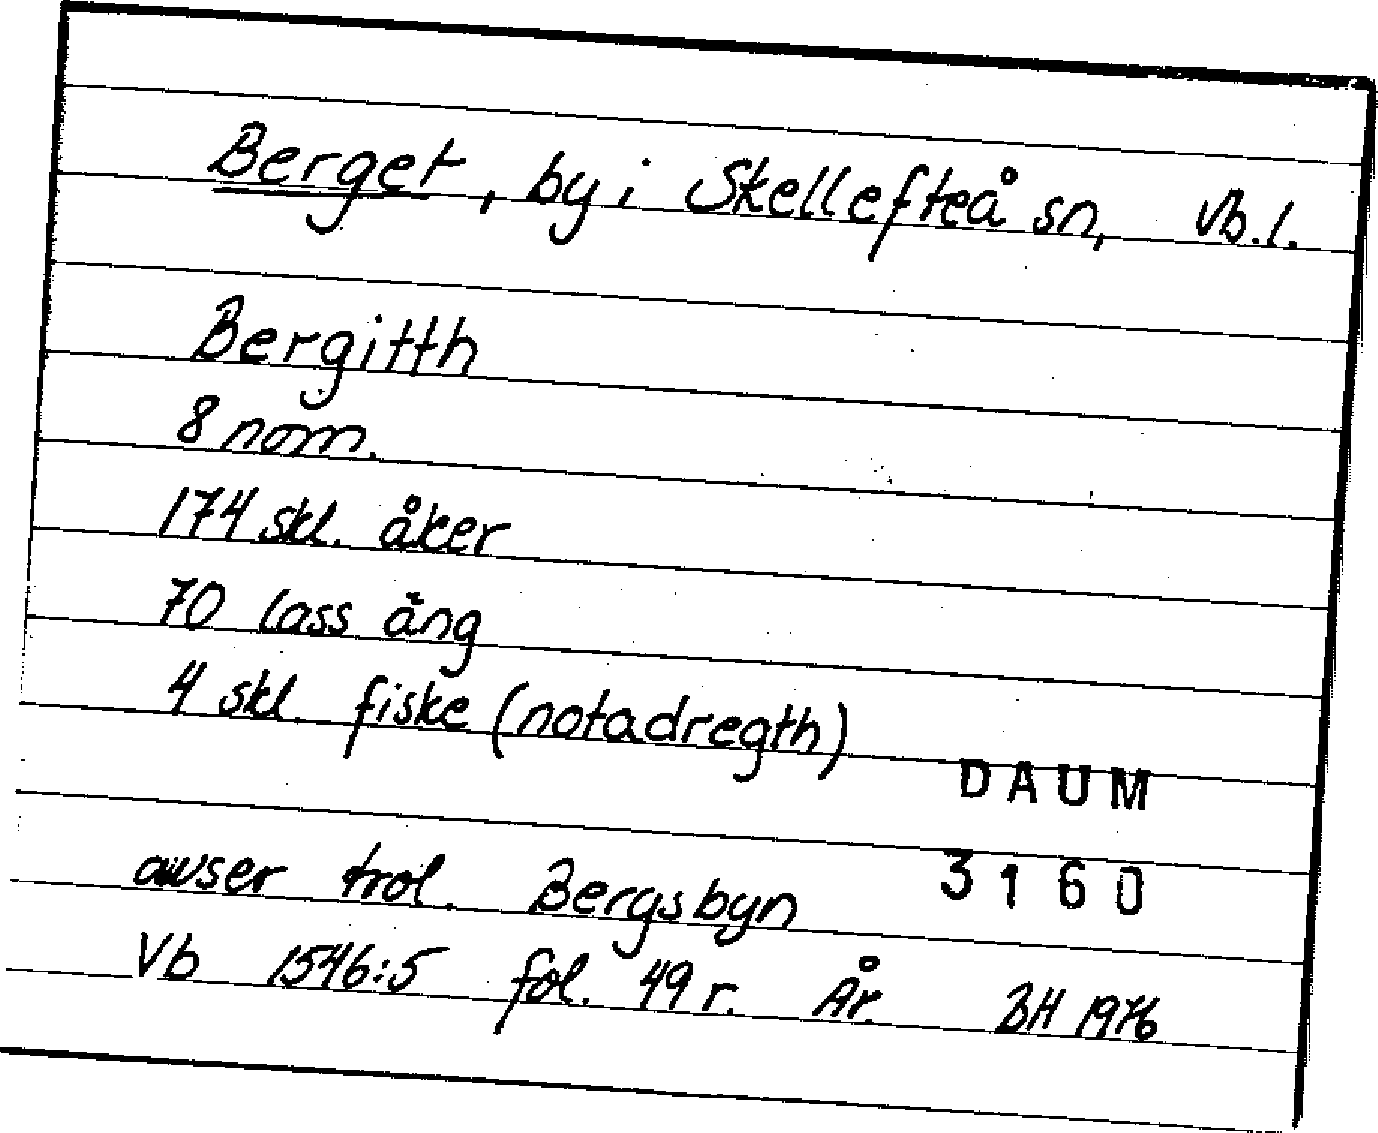 Berget, by i Skellefteå sn, Vb. l.
Bergitth
8 nom.
174 skl. åker
70 lass äng
4 skl. fiske (notadregth)
DAUM
3160
avser trol. Bergsbyn
Vb 1546:5 fol. 49 r. År. BH 1976